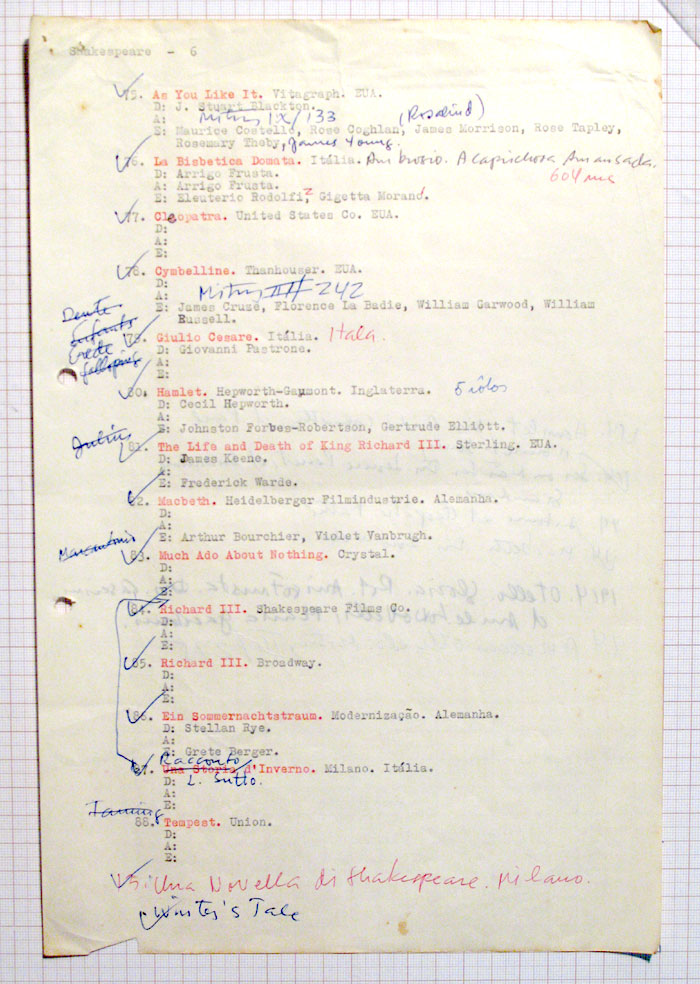 Shakespeare - 6
75. As You Like It. Vitagraph. EUA.
D: J. Stuart Blackton.
A: Mitry IX/133 (Rosalind)
E: Maurice Costello, Rose Coghlan, James Morrison, Rose Tapley,
Rosemary Theby, James Young.
76. La Bisbetica Domata. Itália. Ambrosio. A caprichosa Amansada.
D: Arrigo Frusta. 604 ms
A: Arrigo Frusta.
E: Eleuterio Rodolfi, Gigetta Morand.
77. Cleopatra. United States Co. EUA.
D:
A:
E:
78. Cymbelline. Thanhouser. EUA.
D:
A: Mitry III 242
E: James Cruze, Florence La Badie, William Garwood, William
Russell.
79. Giulio Cesare. Itália. Itala.
D: Giovanni Pastrone.
A:
E:
80. Hamlet. Hepworth-Gaumont. Inglaterra. 5 rolos
D: Cecil Hepworth.
A:
E: Johnston Forbes-Robertson, Gertrude Elliott.
Julius
81. The Life and Death of King Richard III. Sterling. EUA.
D: James Keene.
A:
E: Frederick Warde.
82. Macbeth. Heidelberger Filmindustrie. Alemanha.
D:
A:
E: Arthur Bourchier, Violet Vanbrugh.
Marcantonio
83. Much Ado About Nothing. Crystal.
D:
A:
E:
84. Richard III. Shakespeare Films Co.
D:
A:
E:
85. Richard III. Broadway.
D:
A:
E:
86. Ein Sommernachtstraum. Modernização. Alemanha.
D: Stellan Rye.
A:
E: Grete Berger.
Racconto
87. Una Storia d'Inverno. Milano. Itália.
D: L. Sutto.
A:
E:
Taming
88. Tempest. Union.
D:
A:
E:
Novella di Shakespeare. Milano.
Winter's Tale